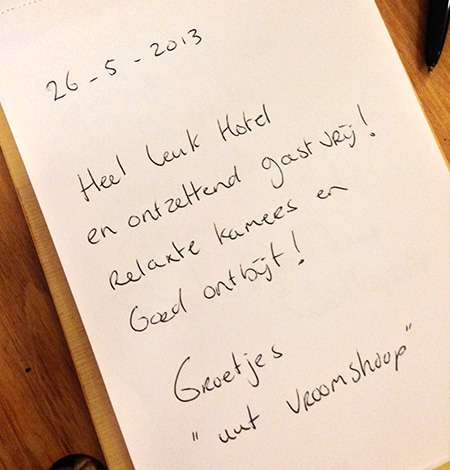 26-5-2013
Heel leuk Hotel
en ontzettend gastvrij!
relaxte kamees en
Goed ontbijt!
Groetjes
"uut Vroomshoop"